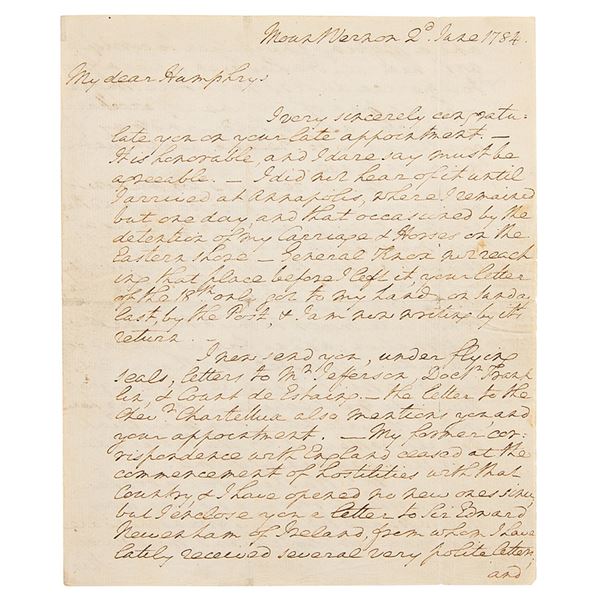 Mount Vernon 2d. June 1784.
My dear Humphrys
I very sincerely congratu-
late you on your late appointment. —
It is honorable, and I dare say must be
agreeable. — I did not hear of it until
I arrived at Annapolis, where I remained
but one day, and that occasioned by the
detention of my Carriage & Horses on the
Eastern shore — General Knox not reach
ing that place before I left it, your letter
of the 18th only got to my hands on Sunday
last, by the Post, & I am now writing by its
return. —
I now send you, under flying
seals, letters to Mr Jefferson, Doctr Frank
lin, & Count de Estaing — the letter to the
Chevr Chartellux also mentions you, and
your appointment. — My former cor-
rispondence with England ceased at the
commencement of hostilities with that
Country, & I have opened no new ones since,
but I enclose you a letter to Sir Edward
Newenham of Ireland, from whom I have
lately received several very polite letters,
and